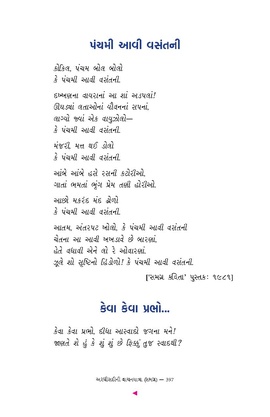 પંચમી આવી વસંતની
કોકિલ, પંચમ બોલ બોલો
કે પંચમી આવી વસંતની.
દખ્ખણના વાયરાનાં આ શાં અડપલાં!
ઊઘડ્યાં લતાઓનાં યૌવનનાં સપનાં,
લાગ્યો જ્યાં એક વાયુઝોલો—
કે પંચમી આવી વસંતની.
મંજરી, મત્ત થઈ ડોલો
કે પંચમી આવી વસંતની.
આંબે આંબે હસે રસની કટોરીઓ,
ગાતાં ભમતાં ભૃંગ પ્રેમ તણી હોરીઓ.
આછો મકરંદ મંદ ઢોળો
કે પંચમી આવી વસંતની.
આતમ, અંતરપટ ખોલો, કે પંચમી આવી વસંતની
ચેતના આ આવી ખખડાવે છે બારણાં,
હેતે વધાવી એને લો રે ઓવારણાં.
ઝૂલે શો સૃષ્ટિનો હિંડોળો! કે પંચમી આવી વસંતની.
['સમગ્ર કવિતા' પુસ્તકઃ ૧૯૮૧]
કેવા કેવા પ્રભો...
કેવા કેવા પ્રભો, દીધા આસ્વાદો જગના મને!
જાણતે શે હું કે શું શું છે ફિક્કું તુજ સ્વાદથી?